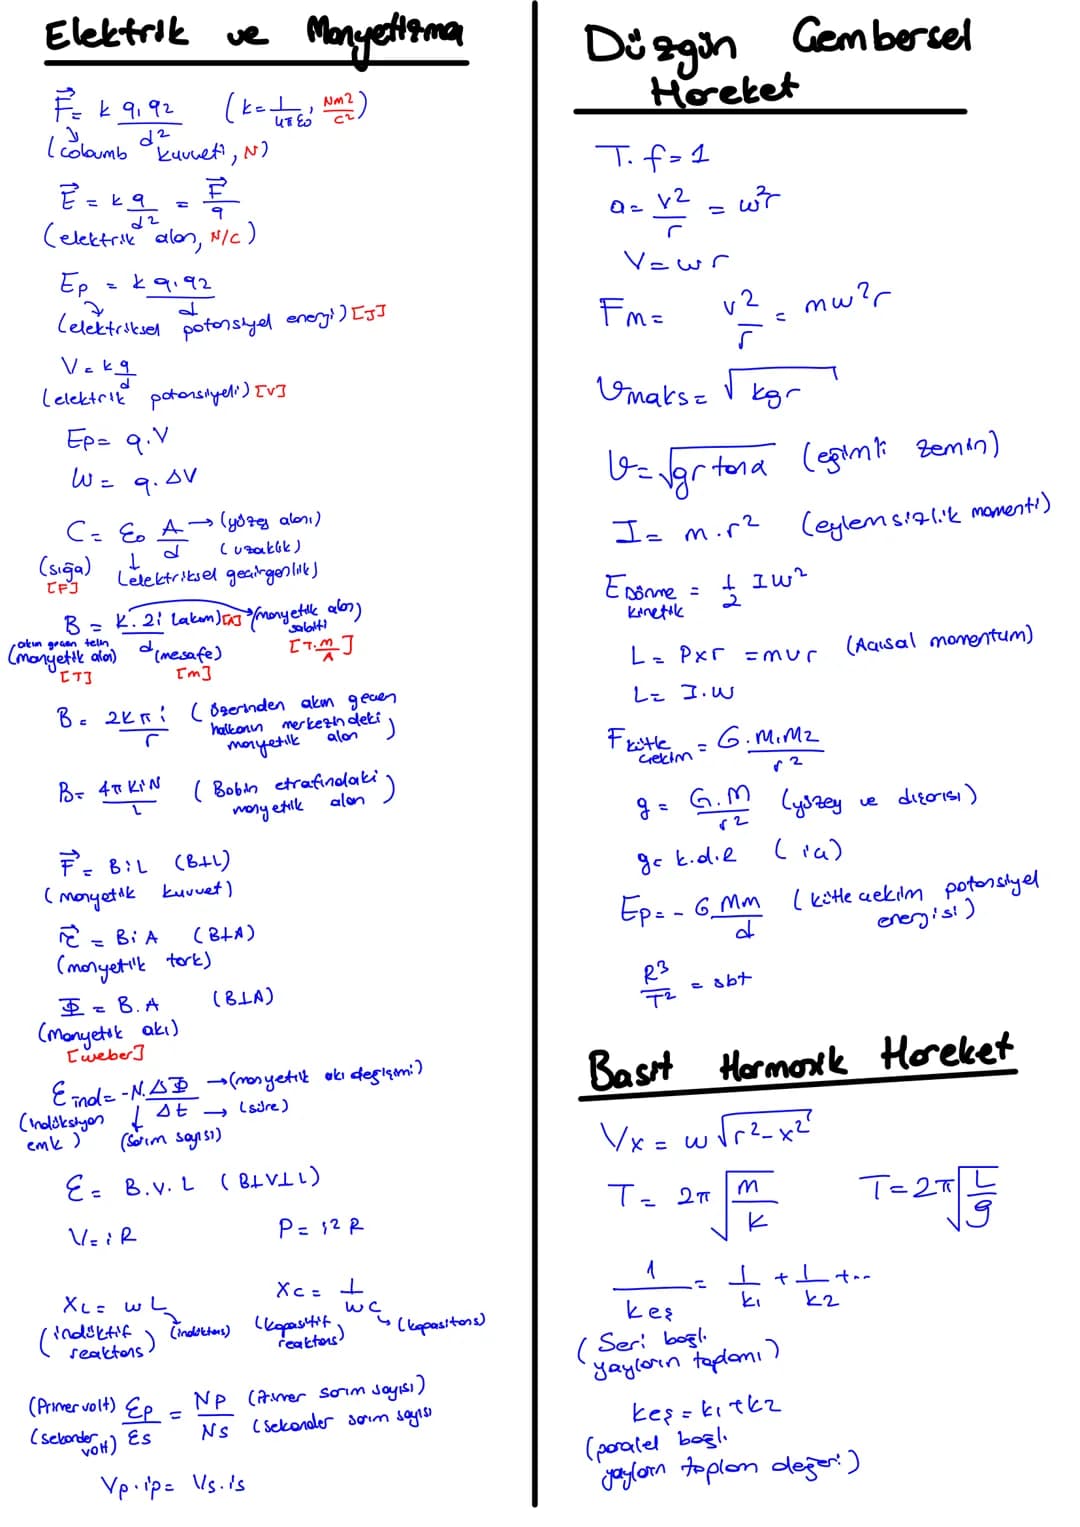 Elektrik ve Manyetizma
F⃗ = k q₁q₂/d² (k = 1/4πε₀, Nm²/C²)
(coloumb kuvveti, N)
E⃗ = k q/d² = F⃗/q
(elektrik alan, N/C)
Ep = k q₁.q₂/d
(elektriksel potansiyel enerji) [J]
V = k q/d
(elektrik potansiyeli) [V]
Ep = q.V
W = q.ΔV
C = ε₀ A/d → (yüzey alanı)
(uzaklık)
(sığa) (elektriksel geçirgenlik)
[F]
B = K.2i/d (akım)[A] (manyetik alan sabiti)
(akım geçen telin manyetik alan) (mesafe) [T.m/A]
[T] [m]
B = 2Kπi/r (üzerinden akım geçen
halkanın merkezindeki
manyetik alan)
B = 4πKiN/L (Bobin etrafındaki
manyetik alan)
F⃗ = BiL (B⊥L)
(manyetik kuvvet)
τ⃗ = BiA (B⊥A)
(manyetik tork)
Φ = B.A (B⊥A)
(Manyetik akı)
[weber]
Ɛind = -N.ΔΦ/Δt → (manyetik akı değişimi)
→ (süre)
(İndüksiyon emk) (Sarım sayısı)
Ɛ = B.v.L (B⊥V⊥L)
V = iR P = i²R
XL = wL Xc = 1/wc
(indüktif reaktans) (indüktans) (kapasitif reaktans) (kapasitans)
(Primer volt) Ɛp/Ɛs = Np/Ns (Primer sarım sayısı)
(sekonder volt) (sekonder sarım sayısı
Vp.ip = Vs.is
Düzgün Çembersel
Hareket
T.f = 1
a = v²/r = w²r
V = wr
Fm = v²/r = mw²r
Vmaks = √kgr
V = √gr tanα (eğimli zemin)
I = m.r² (eylemsizlik momenti)
E Dönme kinetik = 1/2 Iw²
L = Pxr = mvr (Açısal momentum)
L = I.w
F kütle çekim = G.M₁M₂/r²
g = G.M/r² (yüzey ve dışarısı)
g = k.d.R (içi)
Ep = -G Mm/d (kütle çekim potansiyel
enerjisi)
R³/T² = sbt
Basit Harmonik Hareket
Vx = w √r²-x²
T = 2π √m/k T = 2π √L/g
1/keş = 1/k₁ + 1/k2 + ..
(Seri bağlı
yayların toplamı)
keş = k₁+k2
(paralel bağlı
yayların toplam değeri)